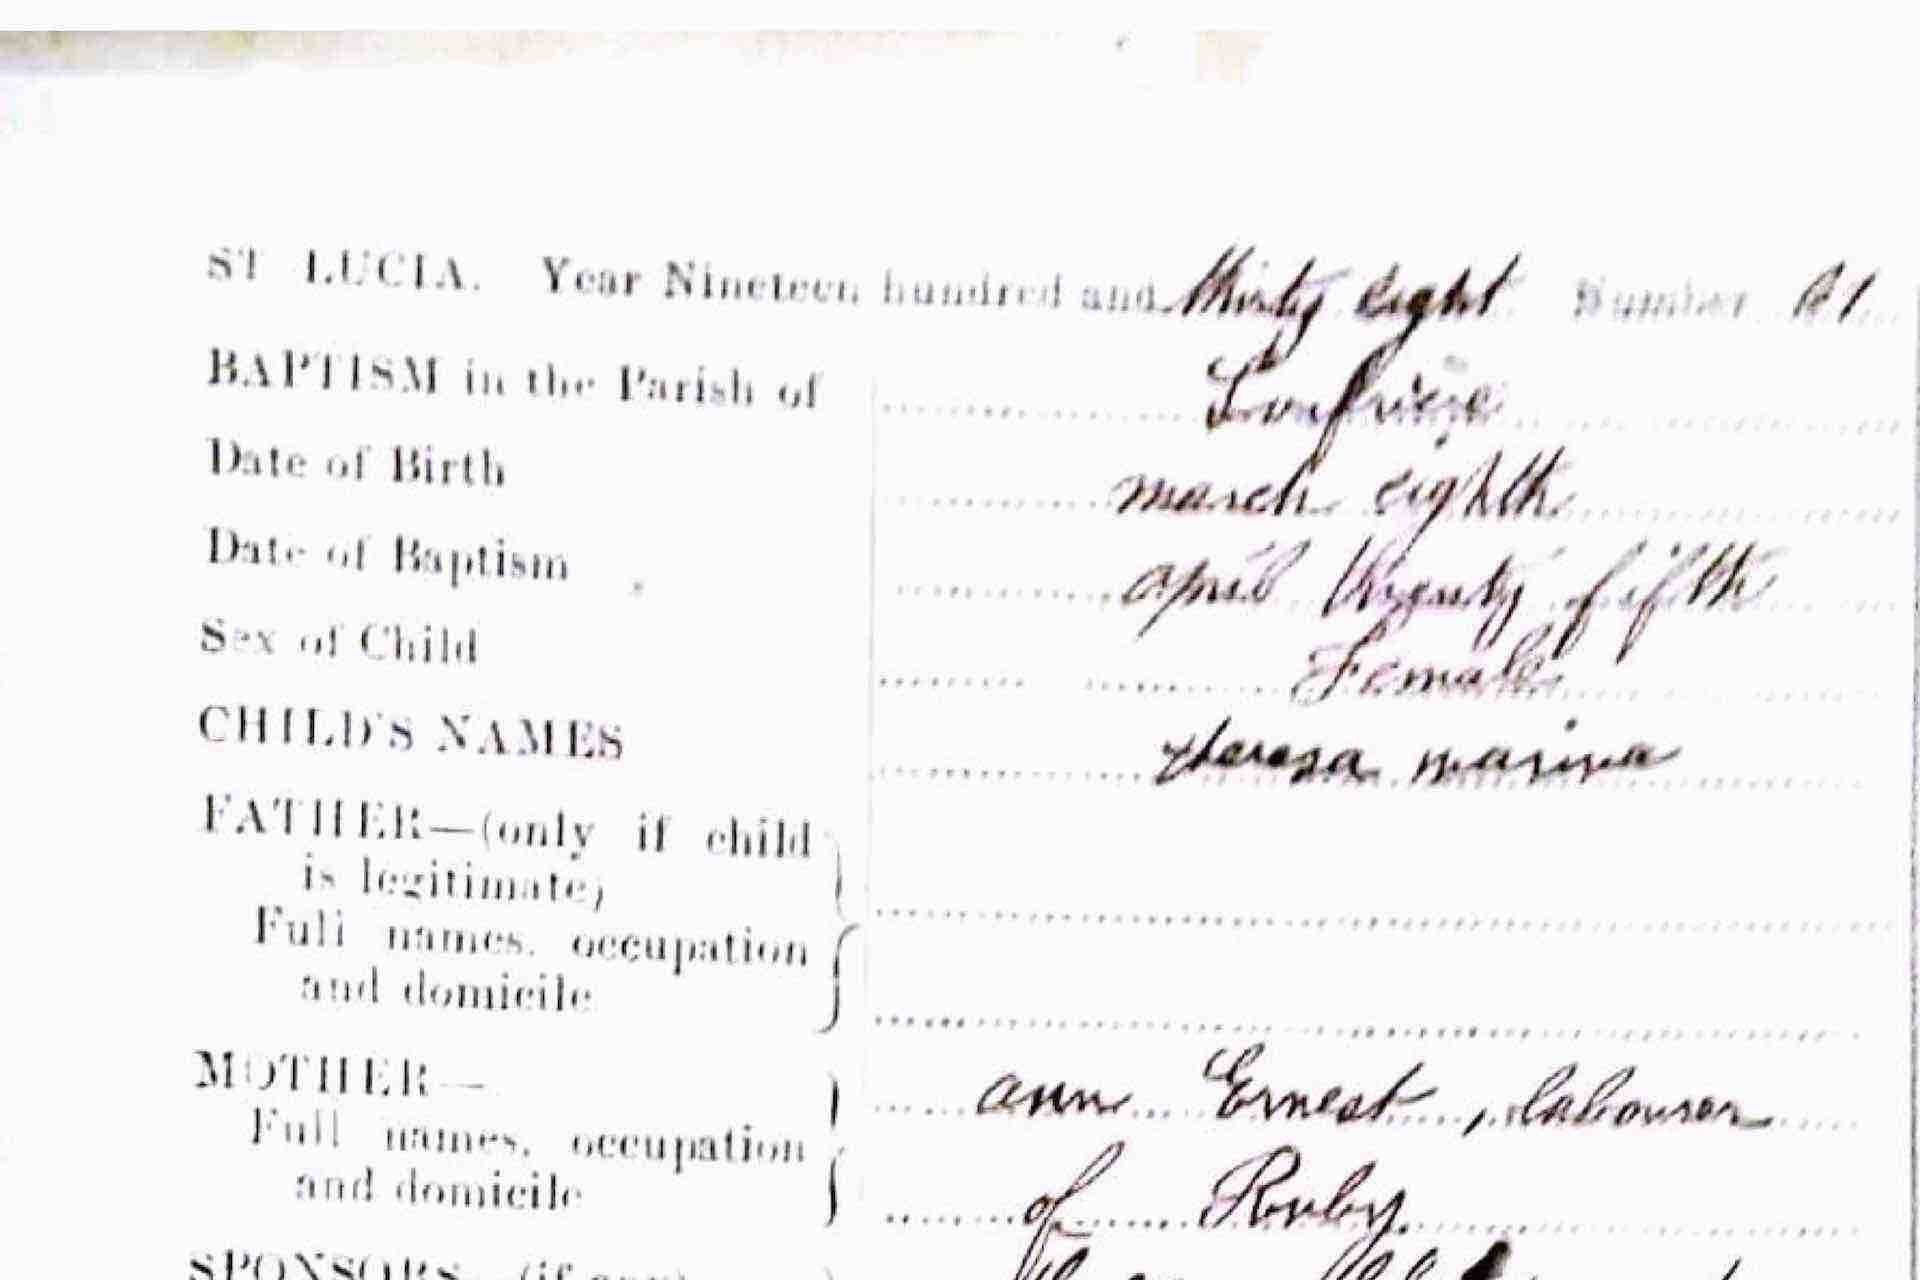 ST LUCIA. Year Nineteen hundred and thirty eight Number 81
BAPTISM in the Parish of Soufriere
Date of Birth march eighth
Date of Baptism april twenty fifth
Sex of Child Female
CHILD'S NAMES theresa marina
FATHER—(only if child
is legitimate)
Full names, occupation
and domicile
MOTHER— ann Ernest, labourer
Full names, occupation
and domicile of Ruby
SPONSORS—(if any)